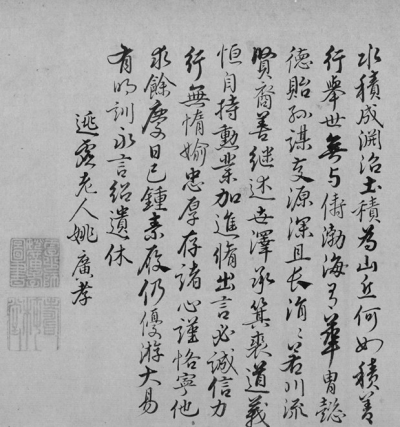 水積成淵治土積為山丘何如積善
行舉世無与儔渤海有華胄懿
德貽孫謀支源深且長涓〻若川流
賢裔善继述世澤承箕裘道義
恒自持勳業加進脩出言必誠信力
行無惰媮忠厚存諸心謹恪寧他
求餘慶日已鍾素履仍優游大易
有明訓永言绍遺休
逃虛老人姚廣孝